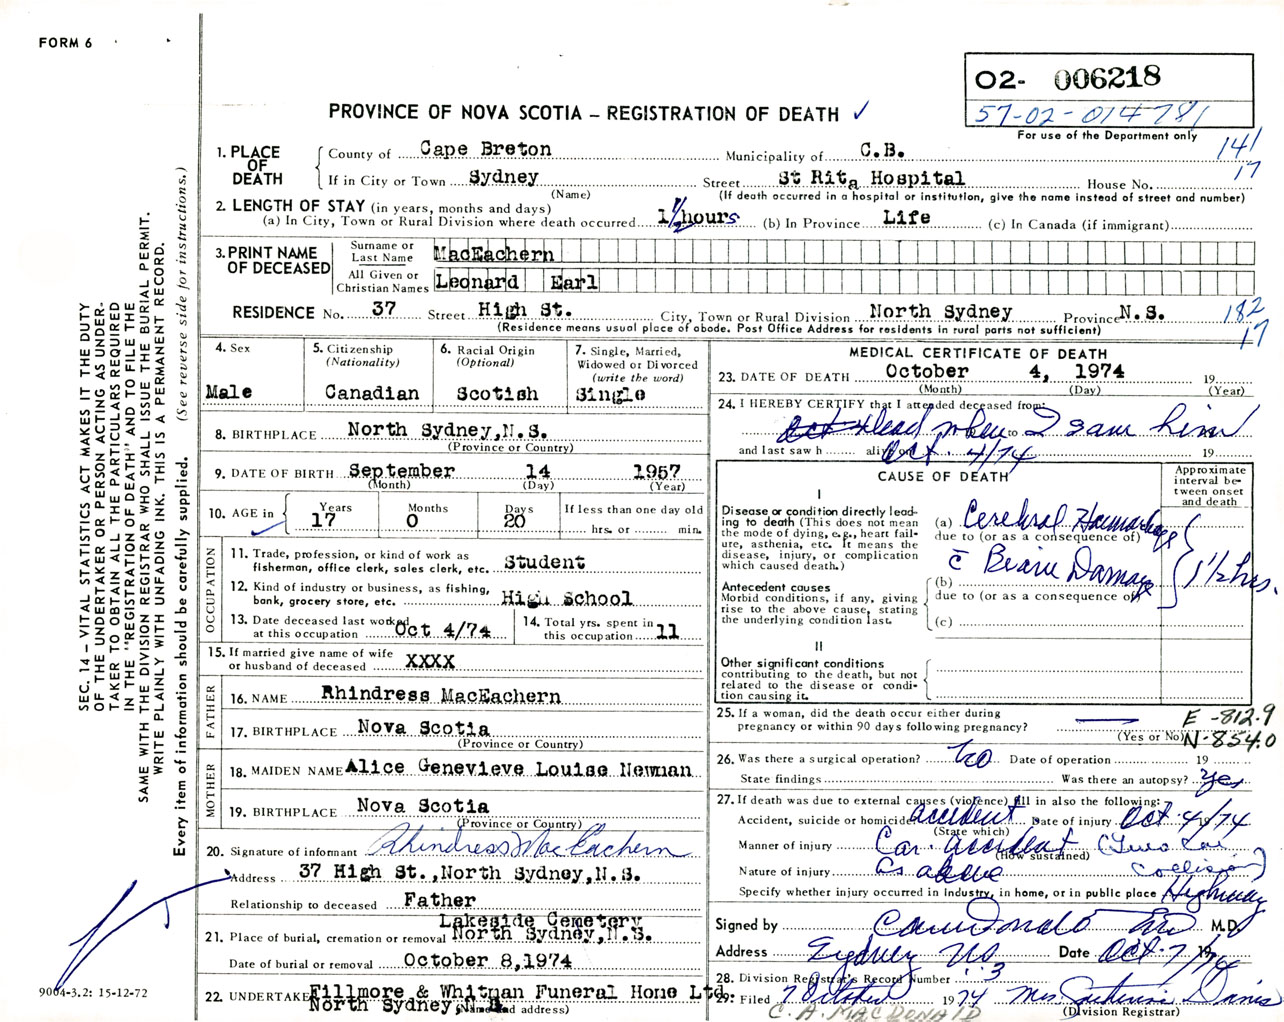 FORM 6
O2- 006218
57-02-014781
For use of the Department only
PROVINCE OF NOVA SCOTIA – REGISTRATION OF DEATH ✓
141
17
1. PLACE OF DEATH
County of Cape Breton Municipality of C.B.
If in City or Town Sydney Street St Rita Hospital House No.
(Name) (If death occurred in a hospital or institution, give the name instead of street and number)
2. LENGTH OF STAY (in years, months and days)
(a) In City, Town or Rural Division where death occurred 1 1/2 hours (b) In Province Life (c) In Canada (if immigrant)
3. PRINT NAME OF DECEASED
Surname or Last Name MacEachern
All Given or Christian Names Leonard Earl
RESIDENCE No. 37 Street High St. City, Town or Rural Division North Sydney Province N.S.
(Residence means usual place of abode. Post Office Address for residents in rural parts not sufficient)
182
17
4. Sex
Male
5. Citizenship
(Nationality)
Canadian
6. Racial Origin
(Optional)
Scotish
7. Single, Married,
Widowed or Divorced
(write the word)
Single
8. BIRTHPLACE North Sydney,N.S.
(Province or Country)
9. DATE OF BIRTH September 14 1957
(Month) (Day) (Year)
10. AGE in Years Months Days If less than one day old
17 0 20 hrs. or min.
OCCUPATION
11. Trade, profession, or kind of work as
fisherman, office clerk, sales clerk, etc. Student
12. Kind of industry or business, as fishing,
bank, grocery store, etc. High School
13. Date deceased last worked
at this occupation Oct 4/74
14. Total yrs. spent in
this occupation 11
15. If married give name of wife
or husband of deceased XXXX
FATHER
16. NAME Rhindress MacEachern
17. BIRTHPLACE Nova Scotia
(Province or Country)
MOTHER
18. MAIDEN NAME Alice Genevieve Louise Newman
19. BIRTHPLACE Nova Scotia
(Province or Country)
20. Signature of informant Rhindress MacEachern
Address 37 High St.,North Sydney,N.S.
Relationship to deceased Father
Lakeside Cemetery
21. Place of burial, cremation or removal North Sydney,N.S.
Date of burial or removal October 8,1974
22. UNDERTAKER Fillmore & Whitman Funeral Home Ltd.
North Sydney,N.S.
(Name and address)
MEDICAL CERTIFICATE OF DEATH
23. DATE OF DEATH October 4, 1974 19
(Month) (Day) (Year)
24. I HEREBY CERTIFY that I attended deceased from
dead when to I saw him
and last saw h alive on Oct. 4/74 19
CAUSE OF DEATH
Approximate
interval be-
tween onset
and death
I
Disease or condition directly lead-
ing to death (This does not mean
the mode of dying, e.g., heart fail-
ure, asthenia, etc. It means the
disease, injury, or complication
which caused death.)
(a) Cerebral Haemorhage
due to (or as a consequence of)
c̄ Brain Damage
1 1/2 hrs.
Antecedent causes
Morbid conditions, if any, giving
rise to the above cause, stating
the underlying condition last.
(b)
due to (or as a consequence of)
(c)
II
Other significant conditions
contributing to the death, but not
related to the disease or condi-
tion causing it.
25. If a woman, did the death occur either during
pregnancy or within 90 days following pregnancy? —
(Yes or No)
E -812.9
N-854.0
26. Was there a surgical operation? No Date of operation 19
State findings Was there an autopsy? Yes
27. If death was due to external causes (violence) fill in also the following:
Accident, suicide or homicide accident Date of injury Oct. 4/74
(State which)
Manner of injury Car. accident (Two Car
(How sustained)
Nature of injury as above Collision)
Specify whether injury occurred in industry, in home, or in public place Highway
Signed by M.D.
Address Sydney NS Date Oct. 7/74
28. Division Registrar's Record Number 3
29. Filed 7 October 1974 Mrs. Davis
(Division Registrar)
C. A. MACDONALD
SEC. 14 – VITAL STATISTICS ACT MAKES IT THE DUTY
OF THE UNDERTAKER OR PERSON ACTING AS UNDER-
TAKER TO OBTAIN ALL THE PARTICULARS REQUIRED
IN THE "REGISTRATION OF DEATH" AND TO FILE THE
SAME WITH THE DIVISION REGISTRAR WHO SHALL ISSUE THE BURIAL PERMIT.
WRITE PLAINLY WITH UNFADING INK. THIS IS A PERMANENT RECORD.
Every item of information should be carefully supplied. (See reverse side for instructions.)
9004-3.2: 15-12-72